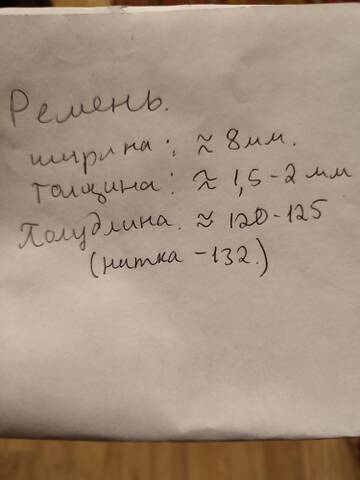 Ремень.
ширина: ≈ 8 мм.
толщина: ≈ 1,5-2 мм
Полудлина. ≈ 120-125
(нитка - 132.)